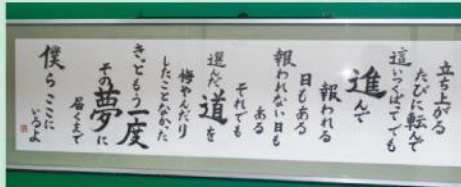 立ち上がる
たびに転んで
這いつくばってでも
進んで
報われる
日もある
報われない日も
ある
それでも
選んだ道を
悔やんだり
したことなかった
きっともう一度
その夢に
届くまで
僕らここに
いるよ